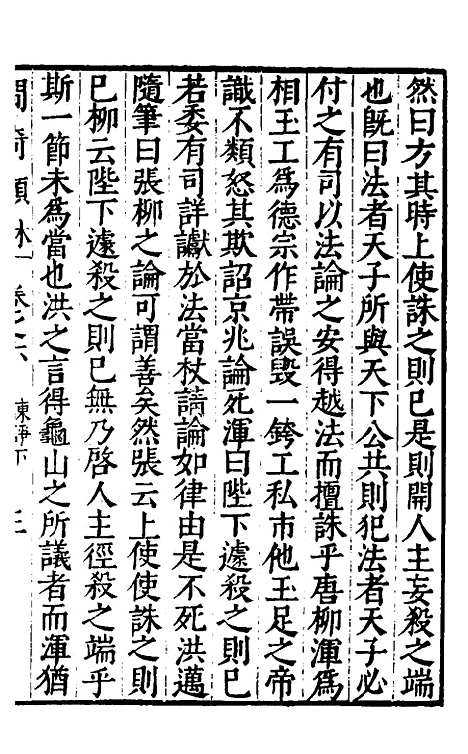 然曰方其時上使誅之則已是則開人主妄殺之端
也旣曰法者天子所與天下公共則犯法者天子必
付之有司以法論之安得越法而擅誅乎唐柳渾爲
相玉工爲德宗作帶誤毁一銙工私市他玉足之帝
識不類怒其欺詔京兆論死渾曰陛下遽殺之則已
若委有司詳讞於法當杖請論如律由是不死洪邁
隨筆曰張柳之論可謂善矣然張云上使使誅之則
已柳云陛下遽殺之則已無乃啓人主徑殺之端乎
斯一節未爲當也洪之言得龜山之所議者而渾猶
問奇類林 卷之六 東諍下 三